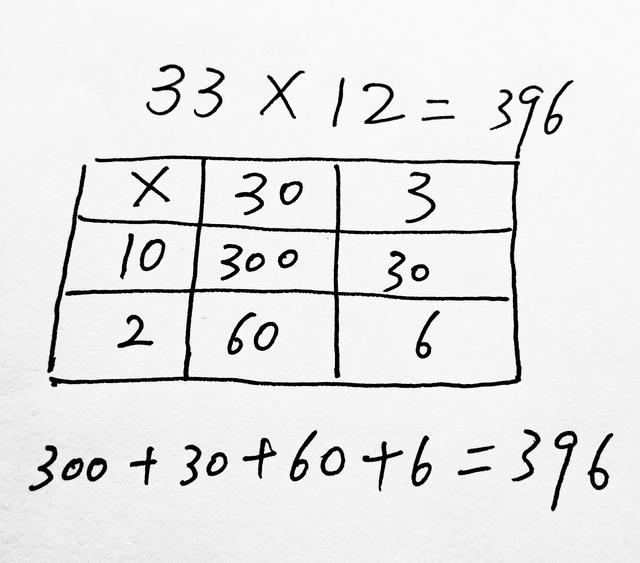 33 × 12 = 396
× 30 3
10 300 30
2 60 6
300 + 30 + 60 + 6 = 396